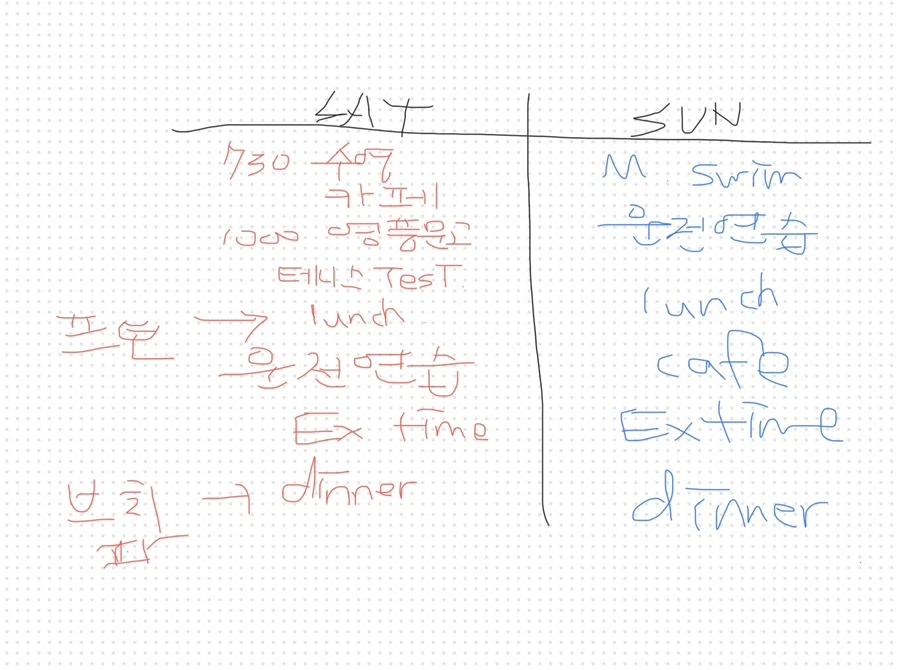 SAT
SUN
730 수영
카페
1000 영풍문고
테니스 TesT
lunch
운전연습
Ex time
→ dinner
M swim
운전연습
lunch
cafe
Ex time
dinner